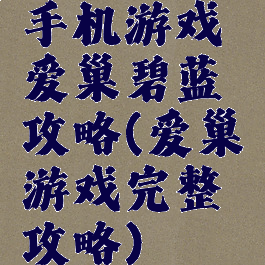 手机游戏
爱巢碧蓝
攻略(爱巢
游戏完整
攻略)